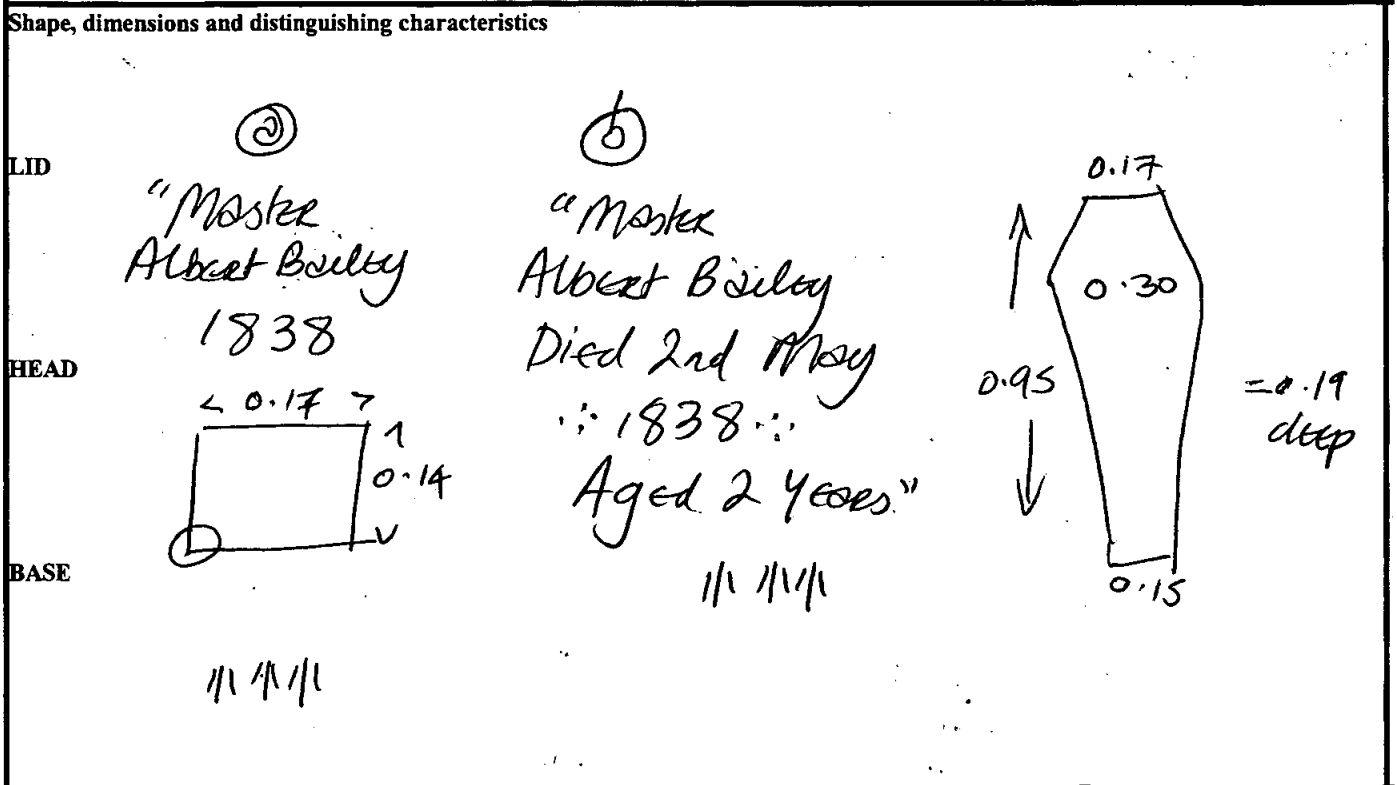 Shape, dimensions and distinguishing characteristics
LID
a
"Master
Albert Bailey
1838
b
"Master
Albert Bailey
Died 2nd May
∴ 1838 ∴
Aged 2 Years"
HEAD
< 0.17 >
0.14
BASE
0.17
0.30
0.95
0.15
= 0.19
deep